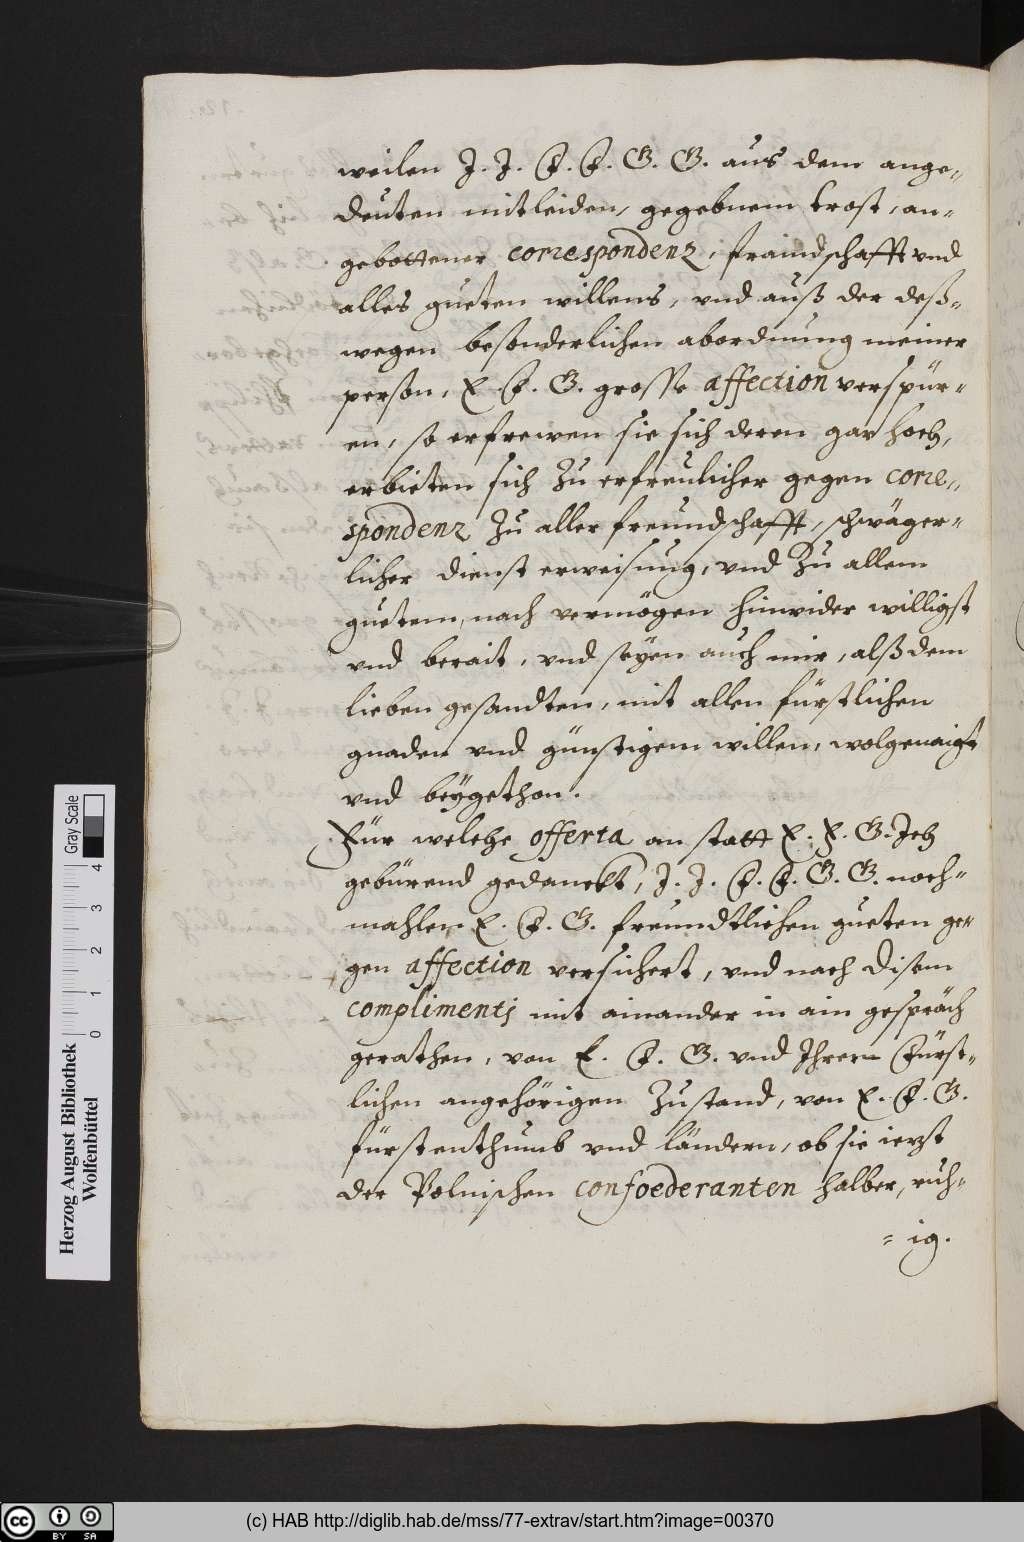 weilen J. J. F. F. G. G. aus dem ange„
deuten mitleiden, gegebnem trost, an„
gebottener correspondenz, fraindschafft vnd
alles gueten willens, vnd auß der deß„
wegen besonderlichen abordnung meiner
person, E F. G. grosse affection verspür„
en, so erfrewen sie sich deren gar hoch,
erbieten sich zu erfreulicher gegen corre„
spondenz zu aller freundschafft, schwäger„
licher dienst erweisung, vnd zu allem
guetem, nach vermögen hinwider willigst
vnd berait, vnd seyen auch mir, alß dem
lieben gesandten, mit allen fürstlichen
gnaden vnd günstigem willen, wolgenaigt
vnd beygethon.
Für welche offerta an statt E. F. G. Ich
gebürend gedanckt, J. J. F. F. G. G. noch„
mahlen E. F. G. freundtlichen gueten ge„
gen affection versichert, vnd nach disem
complimentj mit ainander in ain gespräch
gerathen, von E. F. G. vnd Ihrem Fürst„
lichen angehörigen zustand, von E. F. G.
fürstenthumb vnd ländern, ob sie ietzt
der Polnischen confoederanten halber, ruh„
= ig.
Herzog August Bibliothek
Wolfenbüttel
Gray Scale
0 1 2 3 4
cc BY SA
(c) HAB http://diglib.hab.de/mss/77-extrav/start.htm?image=00370